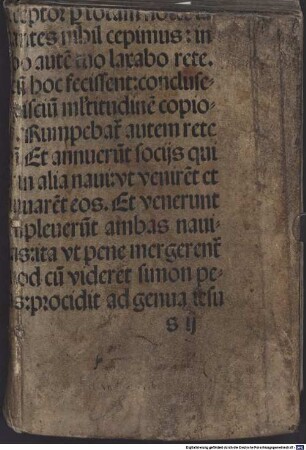 ceptor p totam nocte la
antes nihil cepimus: in
bo autē tuo laxabo rete.
cū hoc fecissent: concluse-
pisciū mlˀtitudinē copio-
. Rumpebat̄ autem rete
ū. Et annuerūt socijs qui
in alia naui: vt venirēt et
iuuarēt eos. Et venerunt
mpleuerūt ambas naui-
as: ita vt pene mergerent̄
uod cū viderēt simon pe-
us: procidit ad genua iesu
s ij
Digitalisierung gefördert durch die Deutsche Forschungsgemeinschaft